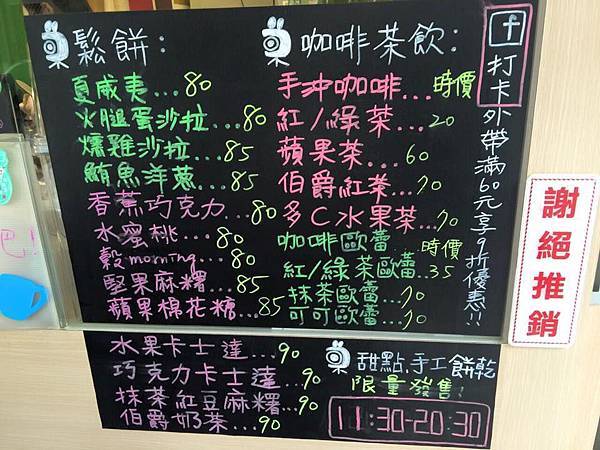 鬆餅:
夏威夷...80
火腿蛋沙拉...80
燻雞沙拉...85
鮪魚洋蔥...85
香蕉巧克力...80
水蜜桃...80
穀morning...80
堅果麻糬...85
蘋果棉花糖...85
水果卡士達...90
巧克力卡士達...90
抹茶紅豆麻糬...90
伯爵奶茶...90
咖啡茶飲:
手沖咖啡...時價
紅/綠茶...20
蘋果茶...60
伯爵紅茶...70
多C水果茶...70
咖啡歐蕾...時價
紅/綠茶歐蕾...35
抹茶歐蕾...70
可可歐蕾...70
甜點.手工餅乾
限量發售!
11:30-20:30
f打卡
外帶滿60元享9折優惠!!
謝絕推銷
吧!